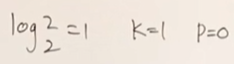 log₂² = 1 K=1 P=0